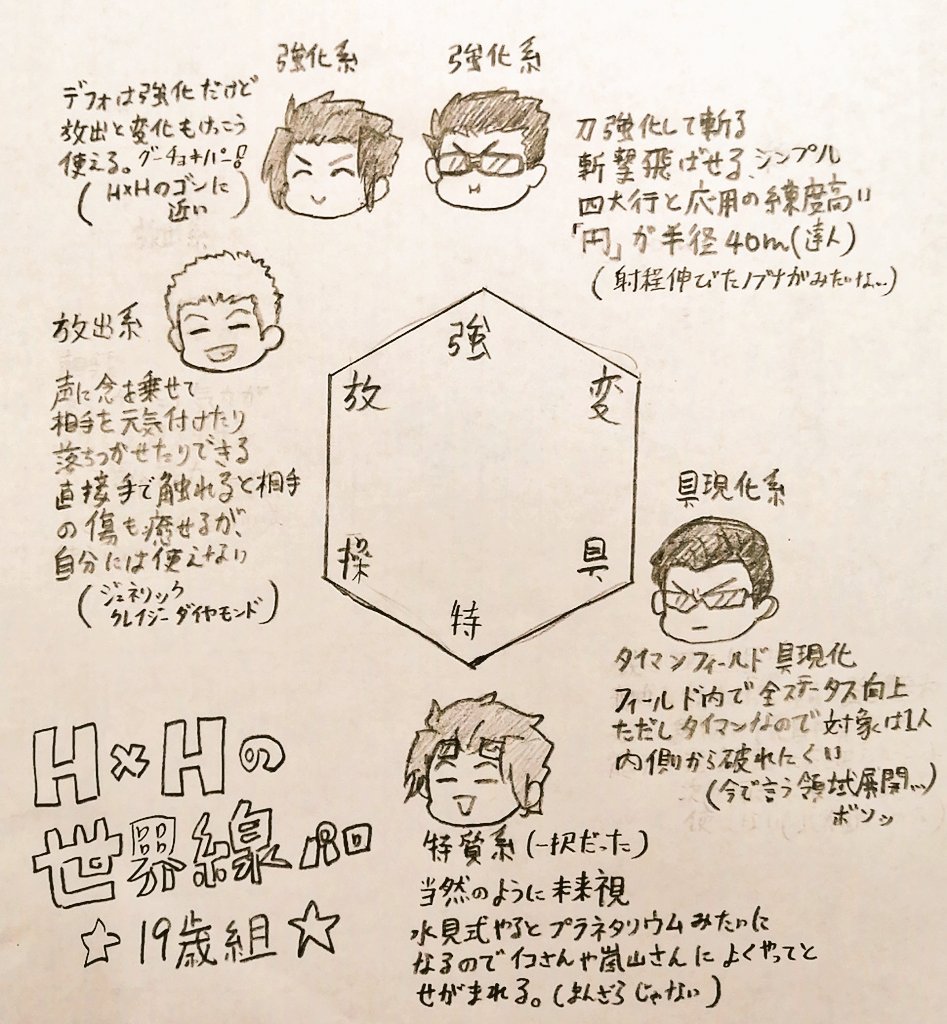 強化系
デフォは強化だけど
放出と変化もけっこう
使える。グーチョキパー!
(H×Hのゴンに
近い)
強化系
刀強化して斬る
斬撃飛ばせる、シンプル
四大行と応用の練度高い
「円」が半径40m(達人)
(射程伸びたノブナガみたいな…)
放出系
声に念を乗せて
相手を元気付けたり
落ちつかせたりできる
直接手で触れると相手
の傷も癒せるが、
自分には使えない
(ジェネリック
クレイジーダイヤモンド)
強
放
変
操
具
特
具現化系
タイマンフィールド具現化
フィールド内で全ステータス向上
ただしタイマンなので対象は1人
内側から破れにくい
(今で言う領域展開…)
ボソッ
特質系(一択だった)
当然のように未来視
水見式やるとプラネタリウムみたいに
なるのでイコさんや嵐山さんによくやってと
せがまれる。(まんざらじゃない)
H×Hの
世界線パロ
☆19歳組☆